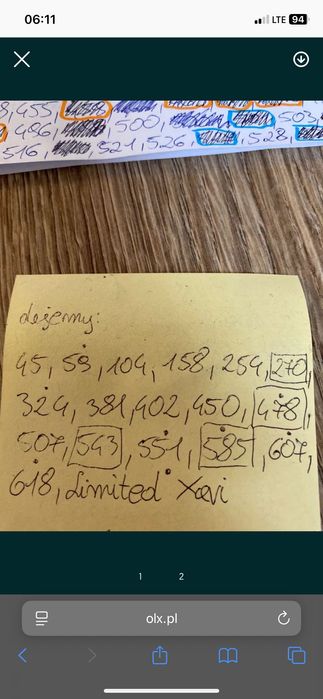 06:11
LTE 94
8, 455,
486, 500, 503,
516, 521, 526, 528,
45, 59, 104, 158, 254, 270,
324, 381, 402, 450, 478,
507, 543, 551, 585, 607,
618, Limited Xavi
1 2
olx.pl